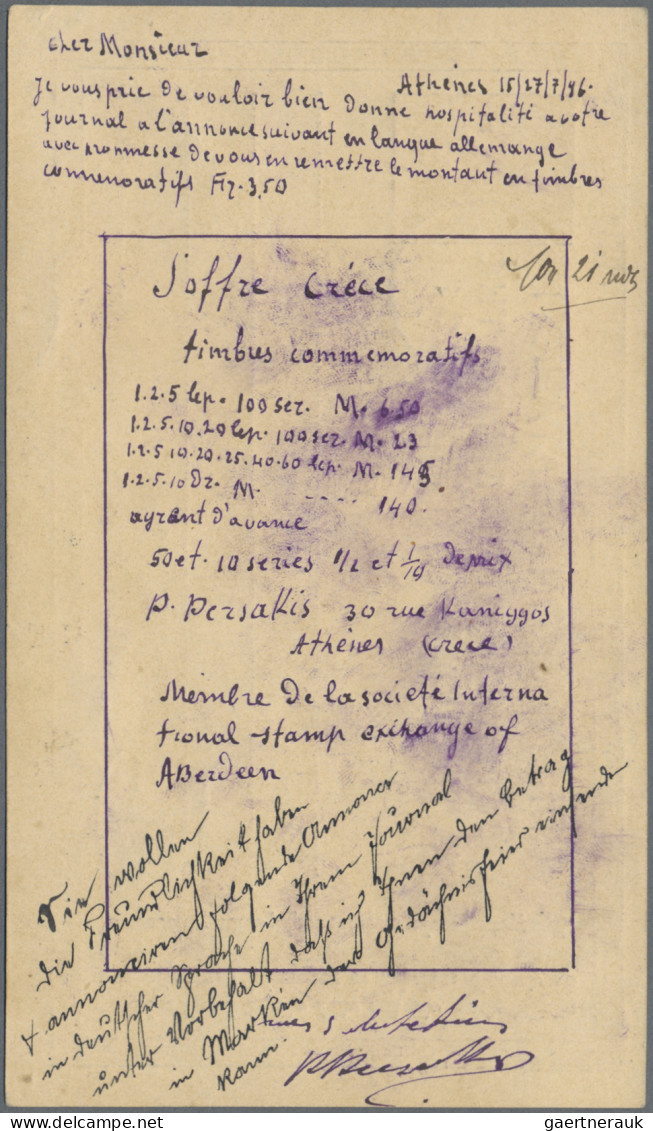 cher Monsieur
Athènes 15/27/7/96.
Je vous prie de vouloir bien donne hospitalité a votre
Journal a l'annonce suivant en langue allemange
avec prommesse de vous en remettre le montaut en timbres
commemoratifs Fr. 3,50
J'offre Créce
21
timbres commemoratifs
1.2.5 lep. 100 ser. M. 6.50
1.2.5.10.20 lep. 100 ser. M. 23
1.2.5 10.20.25.40.60 lep. M. 145
1.2.5.10 Dr. M. ---- 140.
ayrent d'avance
50 et. 10 series 1/2 et 1/10 de prix
P. Persakis 30 rue Kaniggos
Athènes (Crèce)
Membre de la societé Interna
tional stamp exchange of
Aberdeen
Sie wollen
die Freundlichkeit haben
annonciren folgende Annonce
in deutscher Sprache in Ihrem Journal
unter Vorbehalt daß ich Ihnen den betrag
in Marken der Gedächnisfeier einsende
kann.
mes salutations
delcampe.net
gaertnerauk